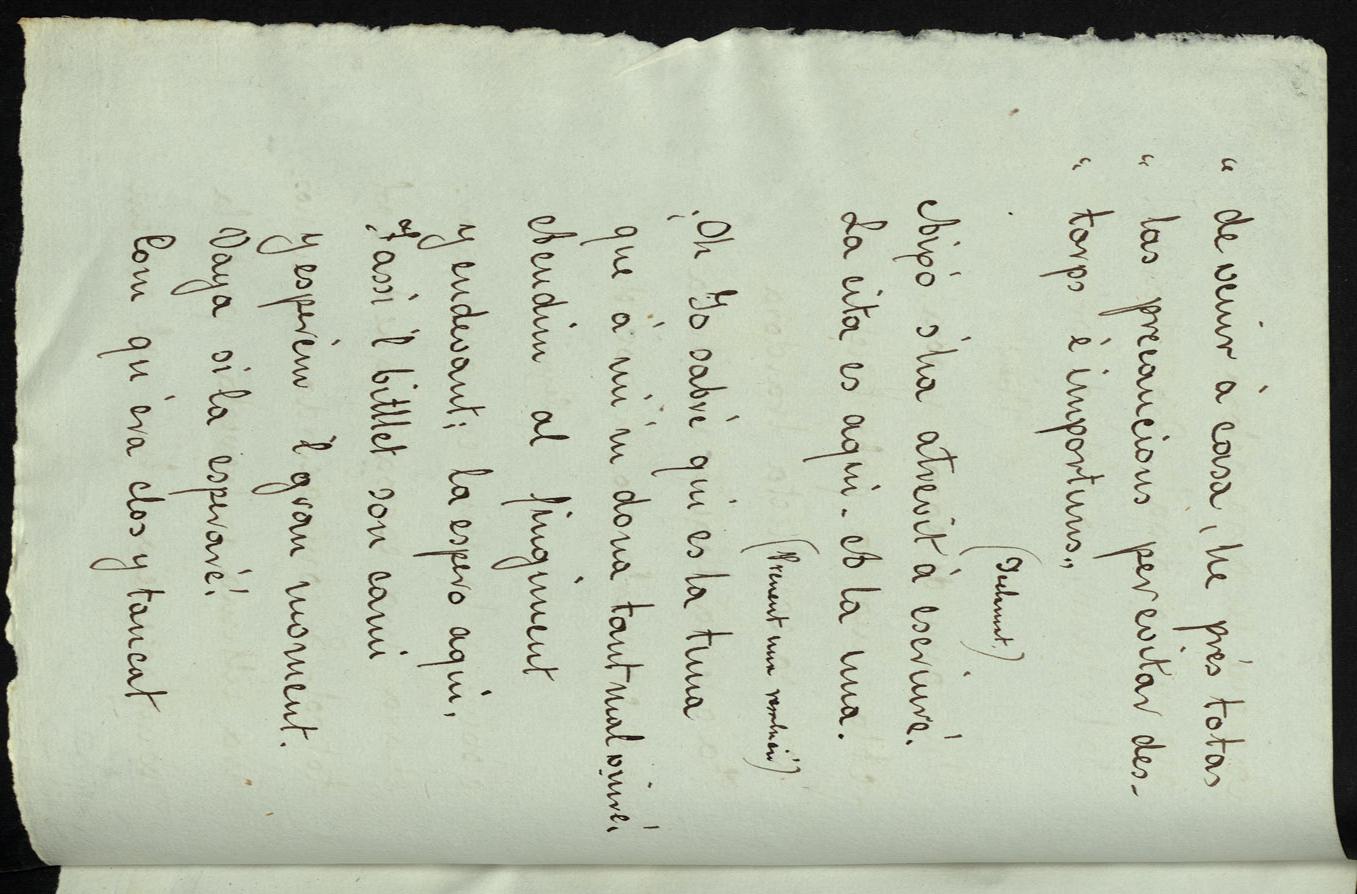 " de venir á casa, he prés totas
" las precaucions per evitar des-
" torps é importuns,,
(Declamat.)
Aixó s'ha atrevit á escriure!
La cita es aquí. A la una.
(Prenent una resolució)
¡Oh! Jo sabré qui es la tuna
que á mí 'm dona tant mal viure!
Atendim al fingiment
y endevant; la espero aquí,
fassi 'l bitllet son camí
y esperém 'l gran moment.
Vaya si la esperaré!
Com qu' era clos y tancat